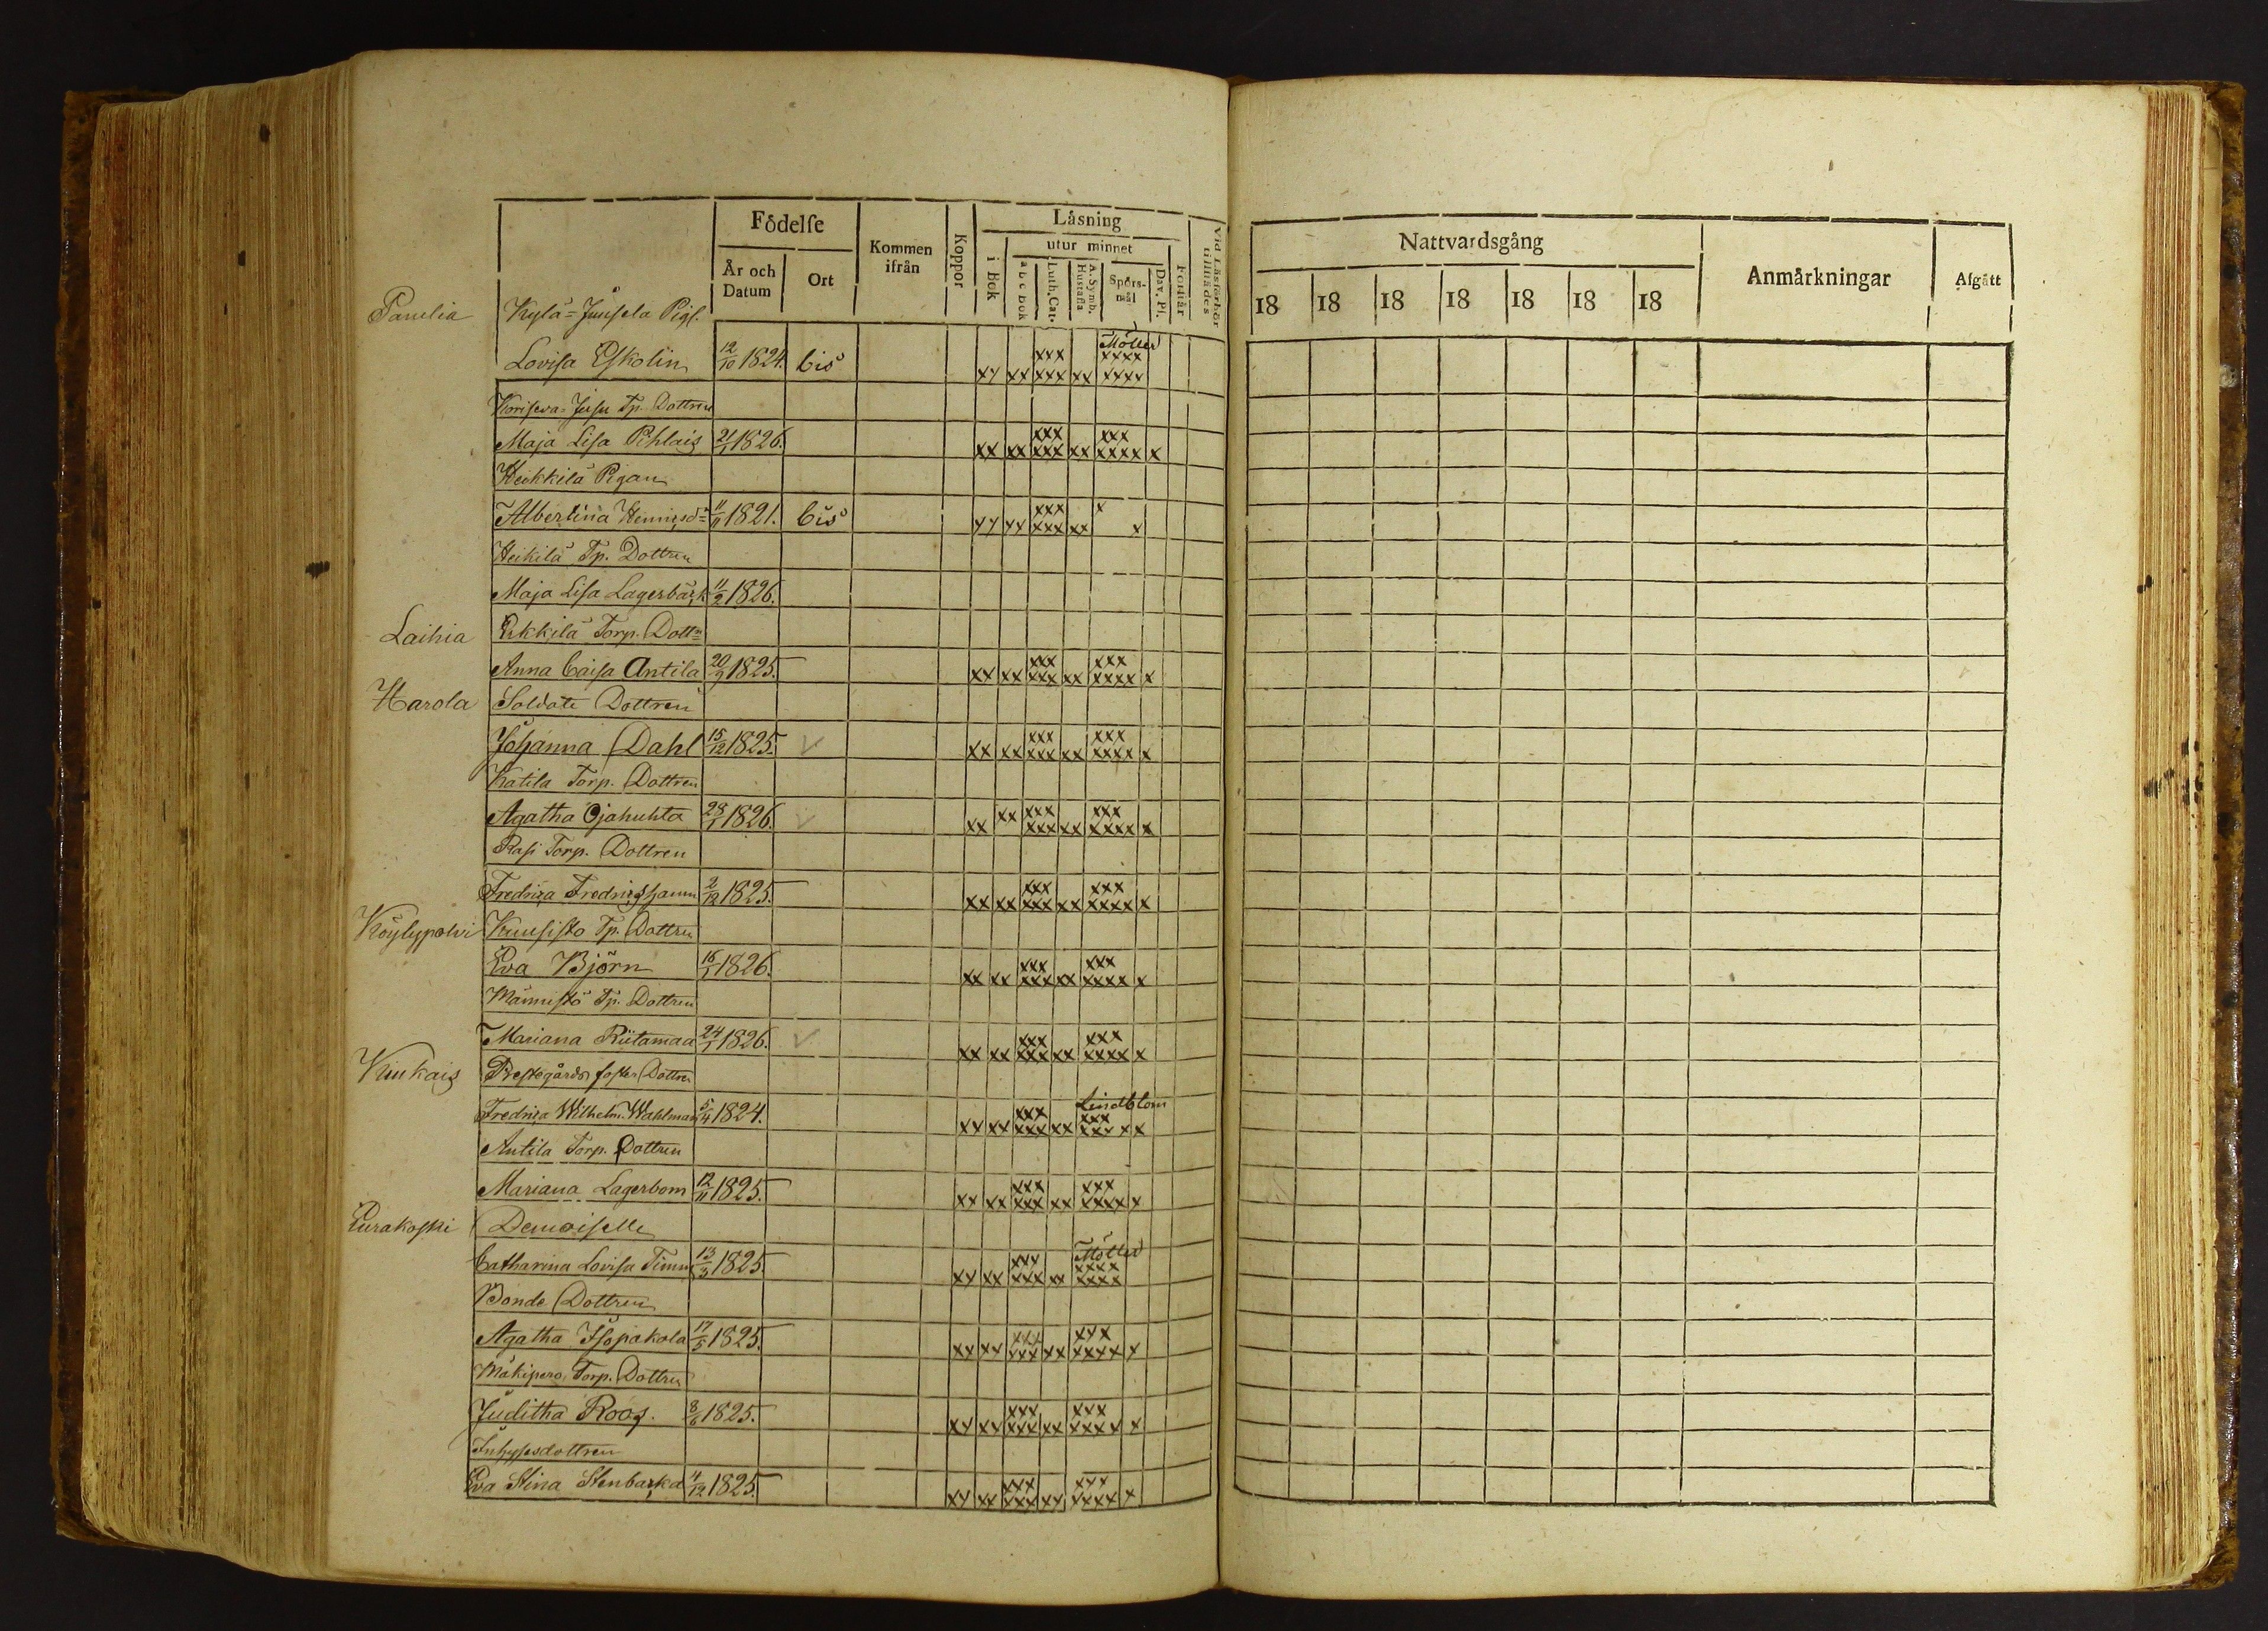 Födelse
Läsning
Nattvardsgång
Kommen ifrån
Koppor
utur minnet
Vid Läsförhör tillstädes
År och Datum
Ort
i Bok
a b c bok
Luth. Cat.
A. Symb. Hustafla
Spörsmål
Dav. Ps.
Förstår
Anmärkningar
Afgått
18 18 18 18 18 18 18
Panelia Kylä-Juusela Pigl.
Möller
xxx xxxx
Lovisa Eskolin 12/10 1824. bis xx xx xxx xx xxxx
Jusu Tp. Dottren
xxx xxx
Maja Lisa Pihlais 21/1 1826. xx xx xxx xx xxxx x
Heikkilä Pigan
xxx x
Albertina Henricsdr 11/11 1821. bis xx xx xxx xx x
Heikilä Tp. Dottren
Maja Lisa Lagerbäck 11/2 1826.
Laihia Erkkilä Torp. Dottn
xxx xxx
Anna Caisa Antila 20/9 1825. xx xx xxx xx xxxx x
Harola Soldate Dottren
xxx xxx
Johanna Dahl 15/12 1825. xx xx xxx xx xxxx x
Katila Torp. Dottren
xx xxx xxx
Agatha Ojahuhta 28/1 1826. xx xxx xx xxxx x
Rasi Torp. Dottren
xxx xxx
Fredrica 2/12 1825. xx xx xxx xx xxxx x
Köylypolvi Kuusisto Tp. Dottren
xxx xxx
Eva Björn 16/1 1826. xx xx xxx xx xxxx x
Männistö Tp. Dottren
xxx xxx
Mariana Riitamaa 24/1 1826. xx xx xxx xx xxxx x
Kiukais Prestegårds foster Dottren
Lindblom
xxx xxx
Fredrica Wilhelm. Wahlman 5/4 1824. xx xx xxx xx xxx x x
Antila Torp. Dottren
xxx xxx
Mariana Lagerbom 12/11 1825. xx xx xxx xx xxxx x
Eurakoski Demoiselle
Möller
xxx xxxx
Catharina Lovisa Timm 13/3 1825. xx xx xxx xx xxxx
Bonde Dottren
xxx xxx
Agatha Isopakola 17/5 1825. xx xx xxx xx xxxx x
Mäkipero Torp. Dottren
xxx xxx
Juditha Roos. 8/6 1825. xx xx xxx xx xxxx x
Inhysesdottren
xxx xxx
Eva Stina Stenbacka 4/12 1825. xx xx xxx xx xxxx x